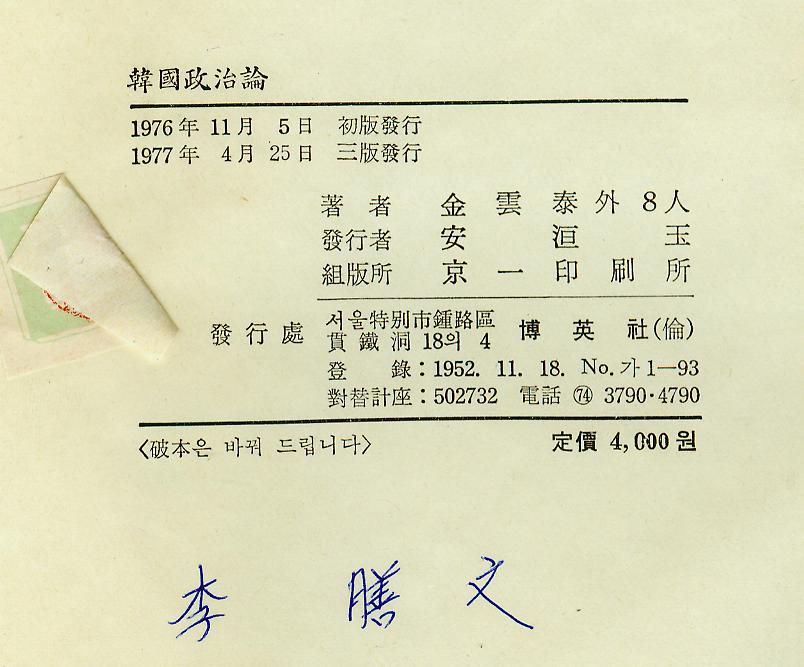 韓國政治論
1976年 11月 5日 初版發行
1977年 4月 25日 三版發行
著者 金雲泰外 8人
發行者 安洹玉
組版所 京一印刷所
發行處 서울特別市鍾路區 貫鐵洞 18의 4 博英社(倫)
登錄：1952. 11. 18. No. 가 1—93
對替計座：502732 電話 ㉔ 3790·4790
〈破本은 바꿔 드립니다〉 定價 4,000원
李膳文